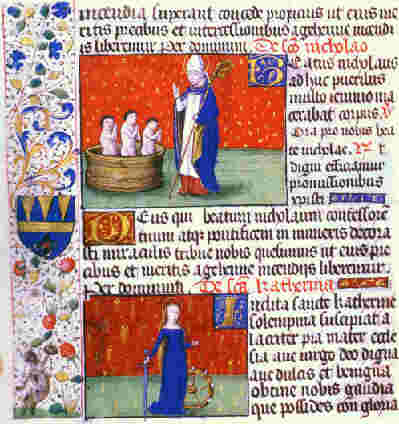 incendia superare concede propicius ut eius me
ritis precibus et intercessionibus a gehenne incendi
is liberemur Per dominum. De sco nicholao
Beatus nicholaus
ad huc puerulus
multo ieiunio ma
cerabat corpus V
Ora pro nobis bea
te nicholae. R Vt
digni efficiamur
promissionibus
xpisti
Deus qui beatum nicholaum confessore
tuum atqz pontificem in innumeris decora
sti miraculis tribue nobis quesumus ut eius pre
cibus et meritis a gehenne incendiis liberemur
Per dominum De sca katherina
Inclita sancta katherine
solempnia suscipiat a
lacriter pia mater eccle
sia aue virgo deo digna
aue dulcis et benigna
obtine nobis gaudia
que possides cum gloria